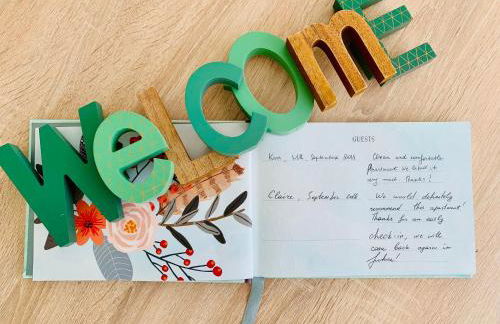 Welcome
GUESTS
Clean and comfortable
Apartment we liked it
very much. Thanks!
Claire, September
We would definitely
recommend this apartment!
Thanks for an easily
check-in, we will
come back again in
future!